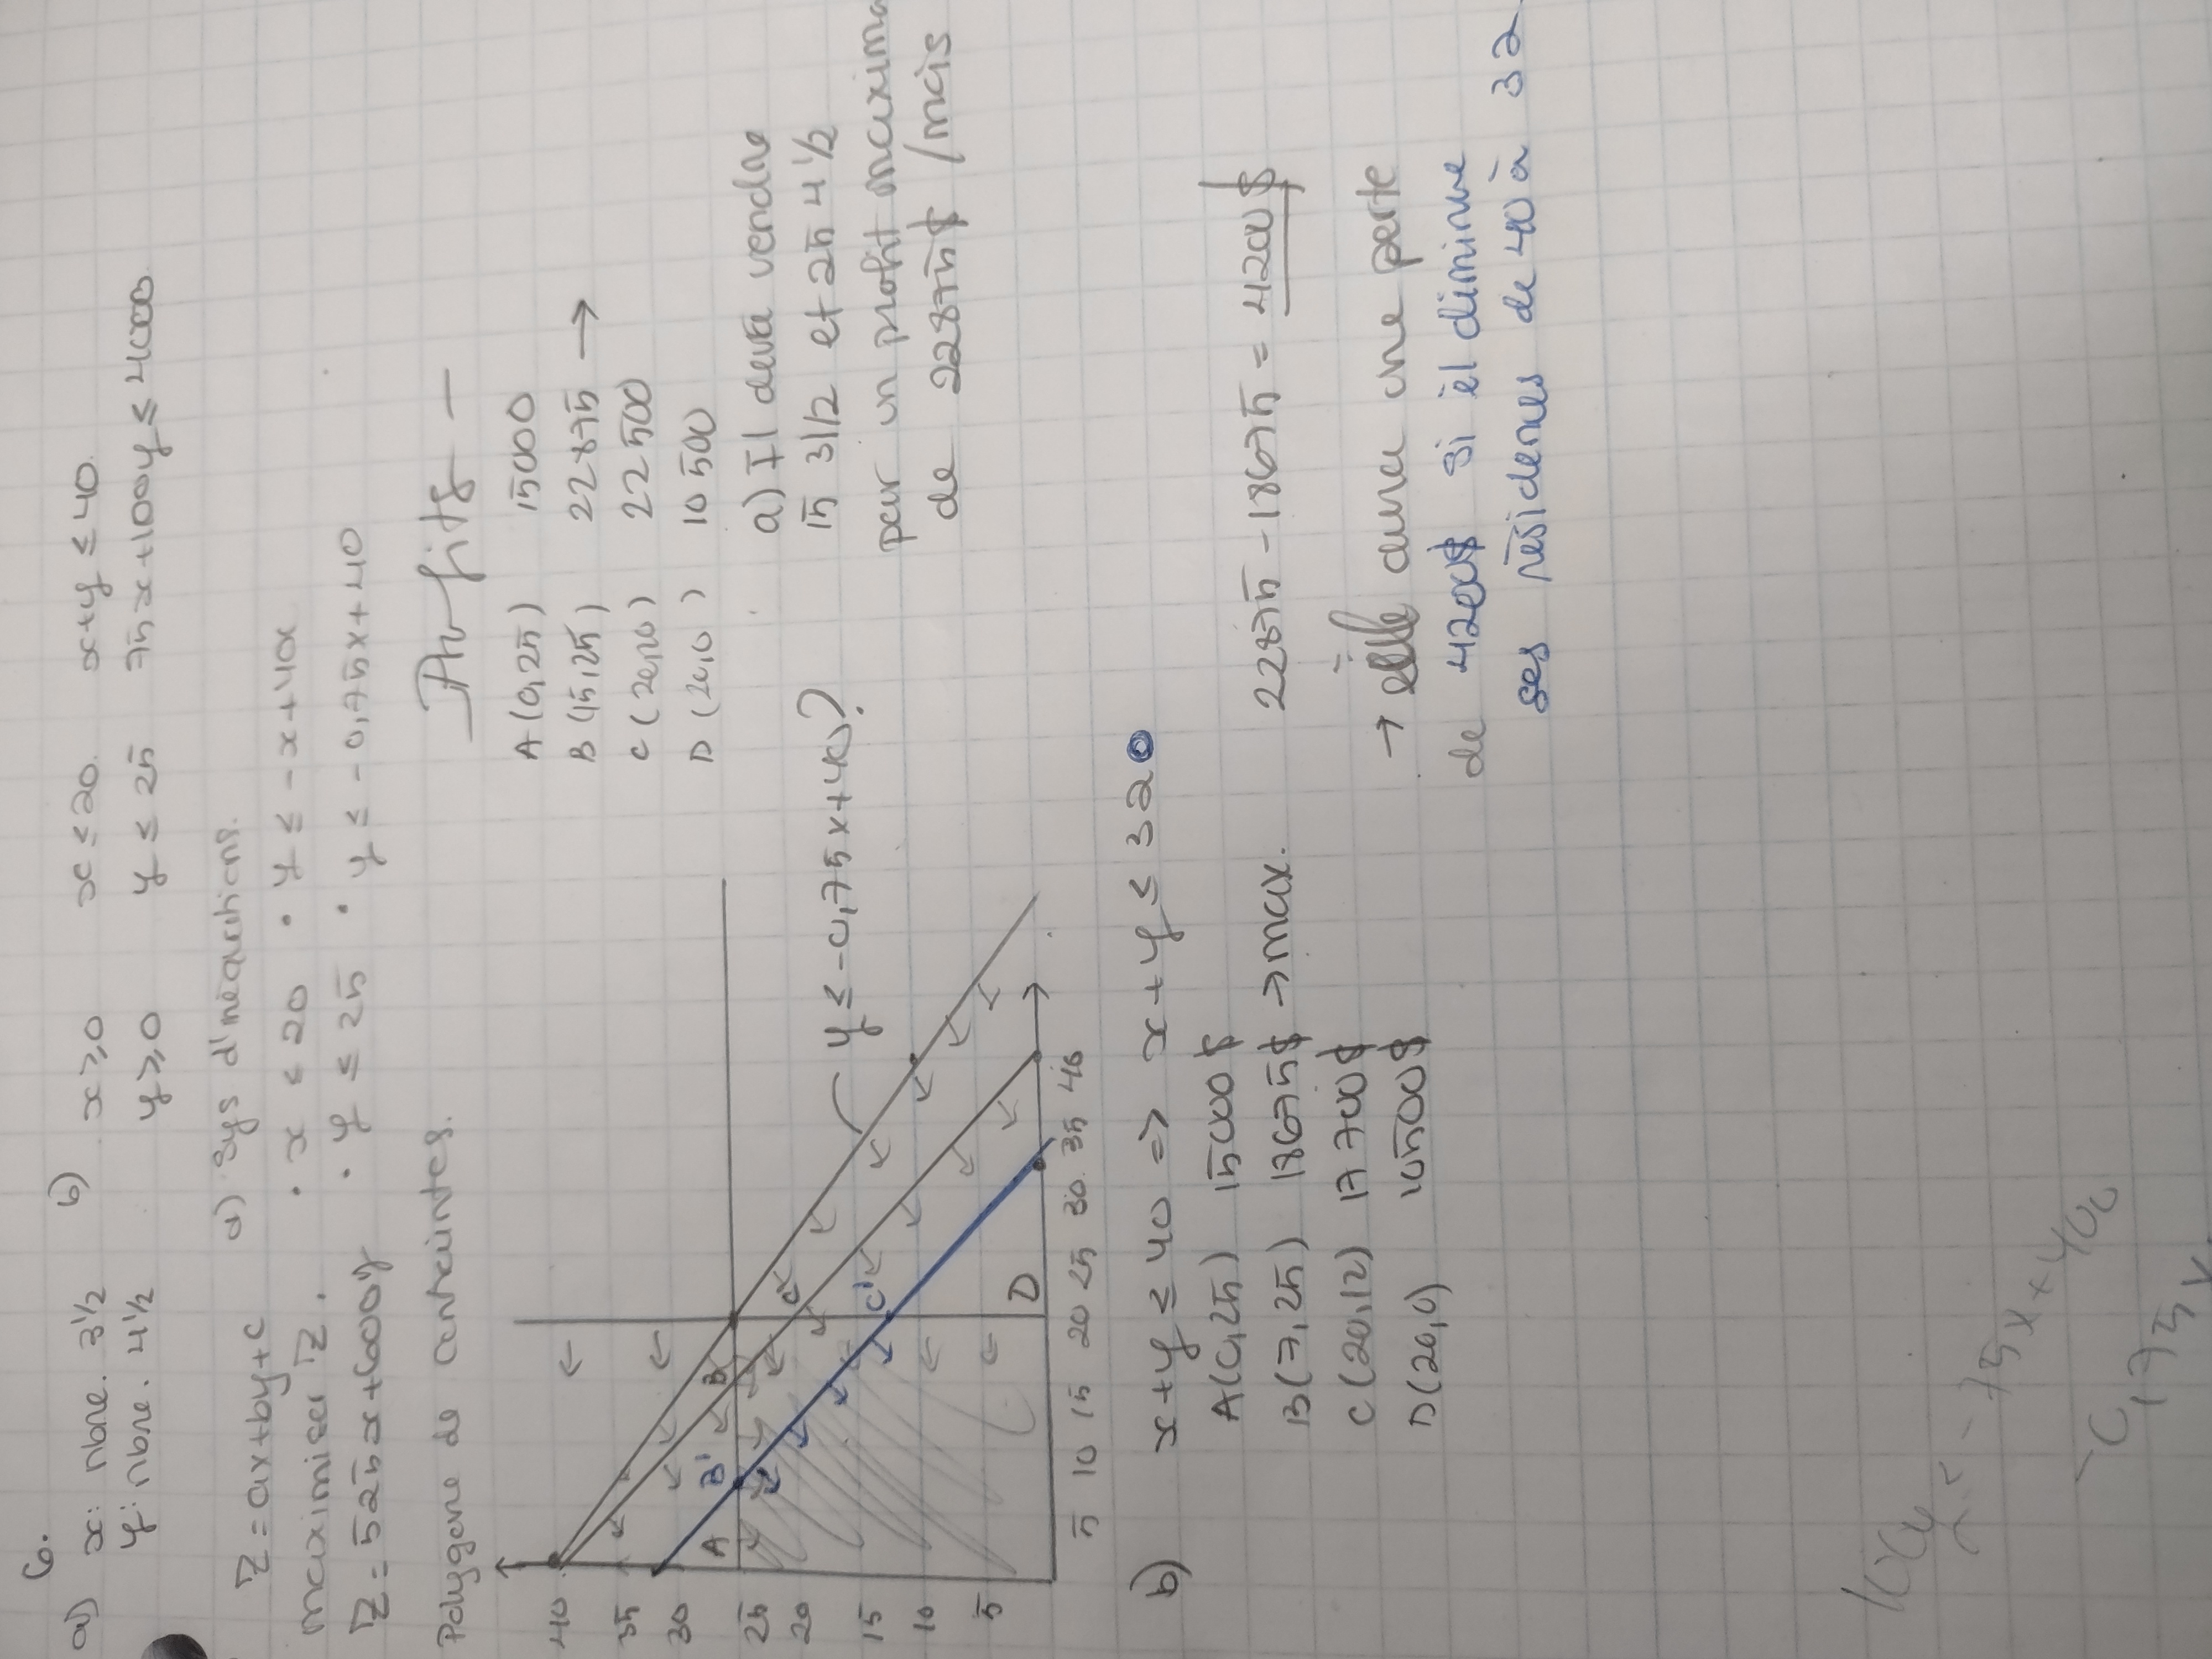 6.
a) x: nbre. 3 1/2
y: nbre. 4 1/2
b) x ≥ 0 x ≤ 20. x+y ≤ 40.
y ≥ 0 y ≤ 25 75x+100y ≤ 4000
Z = ax+by+c
maximiser Z.
Z = 525x+600y
a) Sys d'inéquations.
• x ≤ 20 • y ≤ -x+40
• y ≤ 25 • y ≤ -0,75x+40
Polygone de contraintes.
40
35
30
25
20
15
10
5
5 10 15 20 25 30 35 40
A B B' C C' D
y ≤ -0,75x+40?
Profits —
A (0,25) 15000
B (15,25) 22875 →
C (20,20) 22500
D (20,0) 10500
a) Il devra vendre
15 3 1/2 et 25 4 1/2
pour un profit maximal
de 22875$ /mois
b) x+y ≤ 40 => x+y ≤ 32
A(0,25) 15000$
B(7,25) 18675$ → max.
C(20,12) 17700$
D(20,0) 10500$
22875 - 18675 = 4200$
→ il aura une perte
de 4200$ si il diminue
ses résidences de 40 à 32
100y
-75x + 40
-0,75x